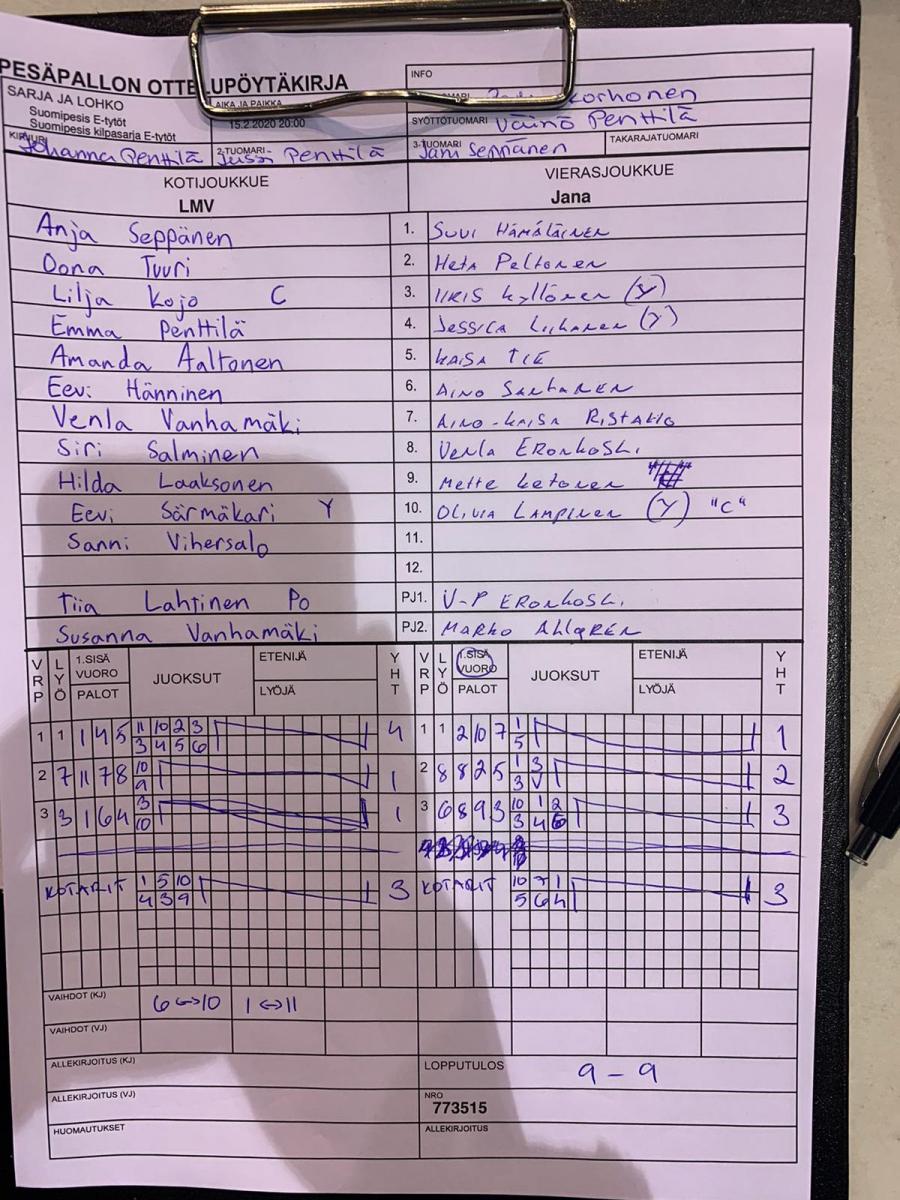 PESÄPALLON OTTELUPÖYTÄKIRJA
INFO
SARJA JA LOHKO
Suomipesis E-tytöt
Suomipesis kilpasarja E-tytöt
AIKA JA PAIKKA
15.2.2020 20:00
Korhonen
SYÖTTÖTUOMARI Väinö Penttilä
KIRJURI Johanna Penttilä
2-TUOMARI Jussi Penttilä
3-TUOMARI Jani Seppänen
TAKARAJATUOMARI
KOTIJOUKKUE
LMV
VIERASJOUKKUE
Jana
Anja Seppänen 1. Suvi Hämäläinen
Oona Tuuri 2. Heta Peltonen
Lilja Kojo C 3. Iiris Kyllönen (Y)
Emma Penttilä 4. Jessica Liikanen (Y)
Amanda Aaltonen 5. Kaisa Tie
Eevi Hänninen 6. Aino Sanhanen
Venla Vanhamäki 7. Aino-Kaisa Ristakio
Siri Salminen 8. Venla Eronkoski
Hilda Laaksonen 9. Mette Ketonen
Eevi Särmäkari Y 10. Olivia Lampinen (Y) "C"
Sanni Vihersalo 11.
12.
Tiia Lahtinen Po PJ1. V-P Eronkoski
Susanna Vanhamäki PJ2. Marko Ahlgren
VRP LYÖ 1.SISÄ VUORO PALOT JUOKSUT ETENIJÄ LYÖJÄ YHT VRP LYÖ 1.SISÄ VUORO PALOT JUOKSUT ETENIJÄ LYÖJÄ YHT
1 1 1 4 5 11 10 2 3 4 1 1 2 10 7 1 1
3 4 5 6 5
2 7 11 7 8 10 1 2 8 8 2 5 1 3 2
9 3 V
3 3 1 6 4 3 1 3 6 8 9 3 10 1 2 3
10 3 4 6
KOTARIT 1 5 10 3 KOTARIT 10 7 1 3
4 3 9 5 6 4
VAIHDOT (KJ) 6 <-> 10 1 <-> 11
VAIHDOT (VJ)
ALLEKIRJOITUS (KJ)
LOPPUTULOS 9 - 9
ALLEKIRJOITUS (VJ)
NRO
773515
HUOMAUTUKSET
ALLEKIRJOITUS